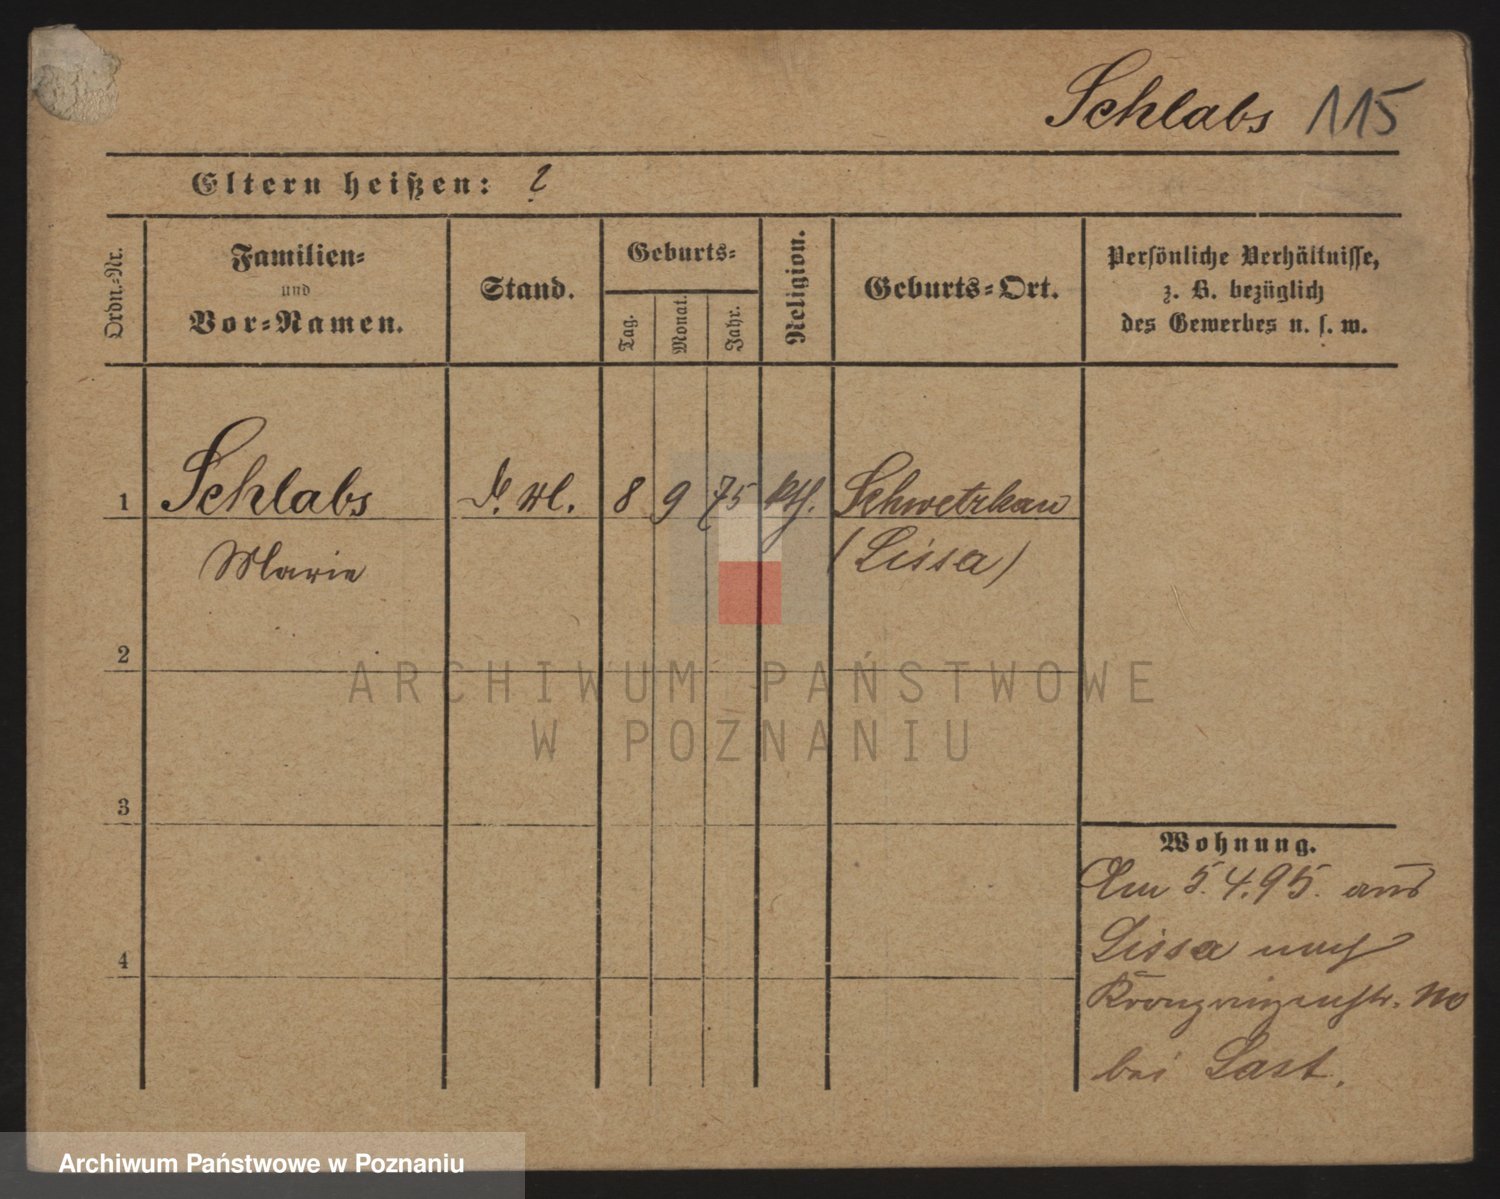 Schlabs 115
Eltern heißen: ?
Ordn.-Nr.
Familien-
und
Vor-Namen.
Stand.
Geburts-
Tag.
Monat.
Jahr.
Religion.
Geburts-Ort.
Persönliche Verhältnisse,
z. B. bezüglich
des Gewerbes u. s. w.
1 Schlabs 8 9 75 kth. Schwetzkau
Marie (Lissa)
2
3
4
Wohnung.
Am 5.4.95. aus
Lissa nach
Kronprinzenstr.
bei Last.
ARCHIWUM PAŃSTWOWE
W POZNANIU
Archiwum Państwowe w Poznaniu